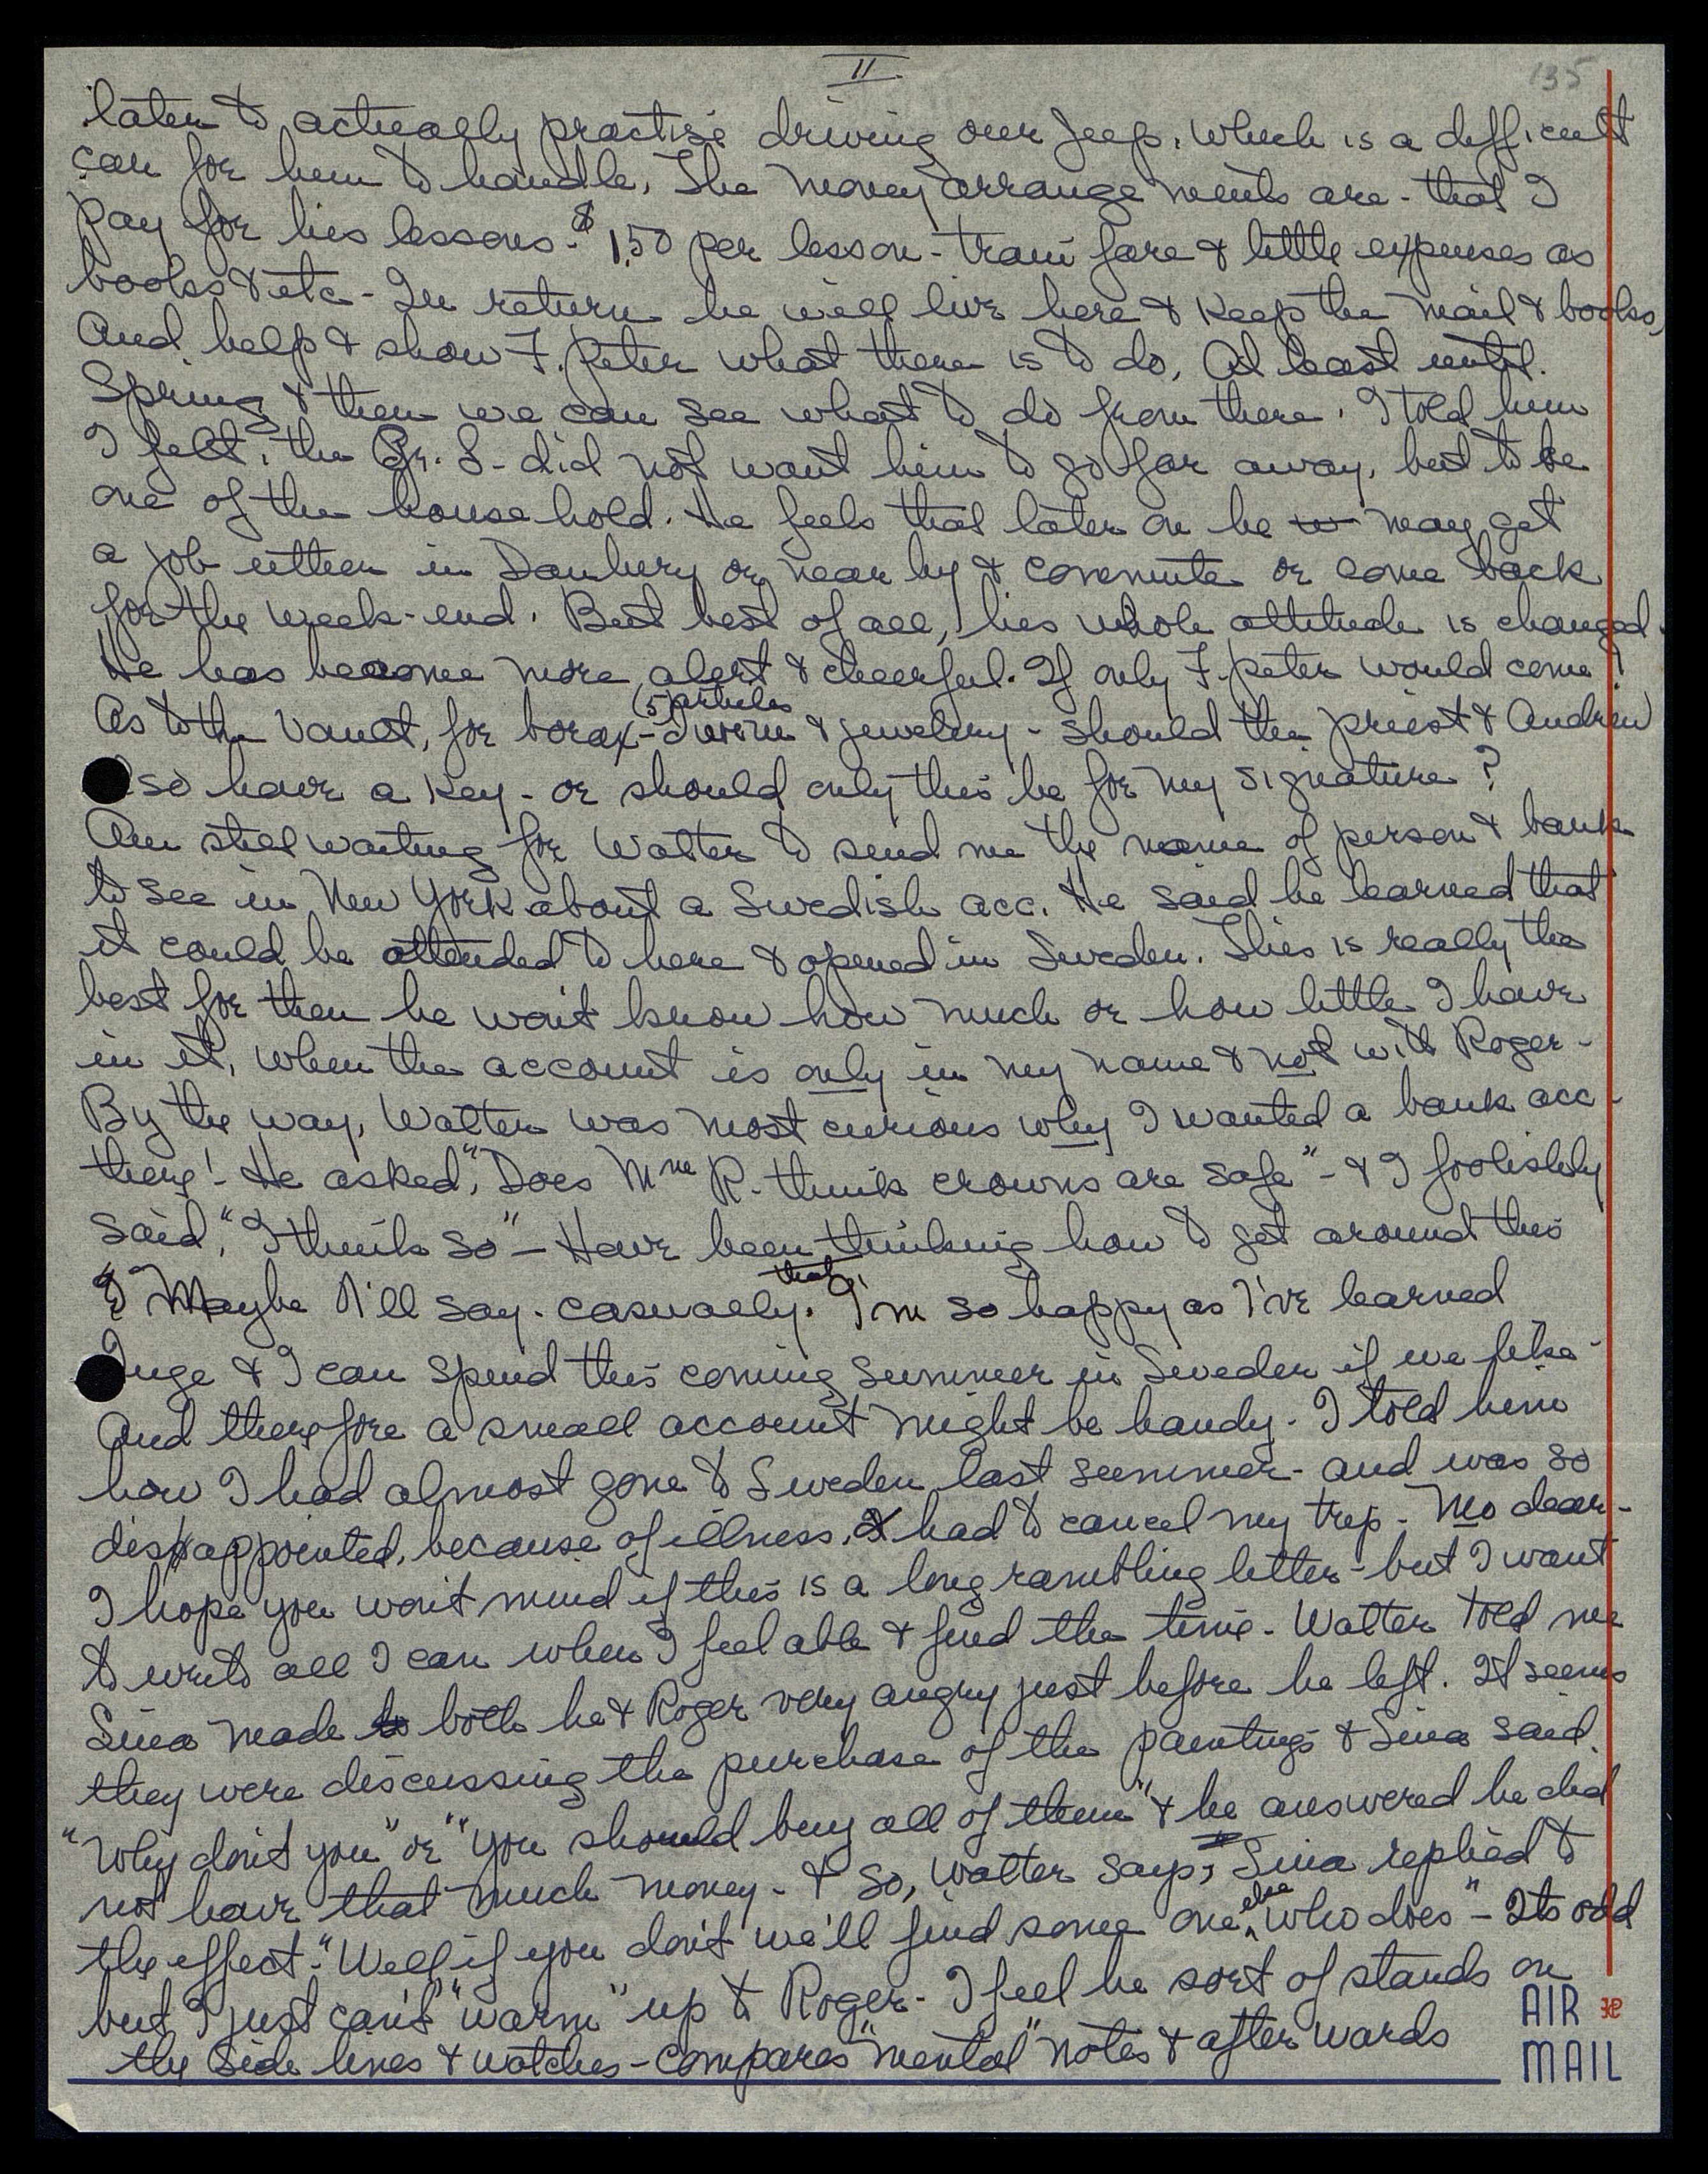 II
135
later to actually practise driving our Jeep, which is a difficult
car for him to handle. The money arrangements are - that I
pay for his lessons - $1.50 per lesson - train fare & little expenses as
books & etc - In return he will live here & keep the mail & books,
And help & show F. Peter what there is to do, At least until
Spring & then we can see what to do from there. I told him
I felt, the Gr. S - did not want him to go far away, but to be
one of the household. He feels that later on he may get
a job either in Danbury or near by & commute or come back
for the week-end. But best of all, his whole attitude is changed.
He has become more alert & cheerful. If only F. Peter would come!
(5) articles
As to the Vault, for borax - & jewelery - should the priest & Andrew
also have a key - or should only this be for my signature?
Am still waiting for Walter to send me the name of person & bank
to see in New York about a Swedish acc. He said he learned that
it could be attended to here & opened in Sweden. This is really the
best for then he won't know how much or how little I have
in it, when the account is only in my name & not with Roger -
By the way, Walter was most curious why I wanted a bank acc -
there! He asked, "Does Mme R. think crowns are safe" - & I foolishly
said, "I think so" - Have been thinking how to get around this
that
& Maybe I'll say - casually. I'm so happy as I've learned
Inge & I can spend this coming summer in Sweden if we like -
And therefore a small account might be handy. I told him
how I had almost gone to Sweden last summer - and was so
disappointed, because of illness, I had to cancel my trip - Mo dear -
I hope you won't mind if this is a long rambling letter - but I want
to write all I can when I feel able & find the time. Walter told me
Sina made to both he & Roger very angry just before he left. It seems
they were discussing the purchase of the paintings & Sina said
"Why don't you" or "you should buy all of them" & he answered he did
not have that much money - & so, Walter says, Sina replied to
the effect - "Well if you don't we'll find some one else who does" - Its odd
but I just can't "warm" up to Roger - I feel he sort of stands on
the side lines & watches - compares "mental" notes & afterwards
AIR
MAIL